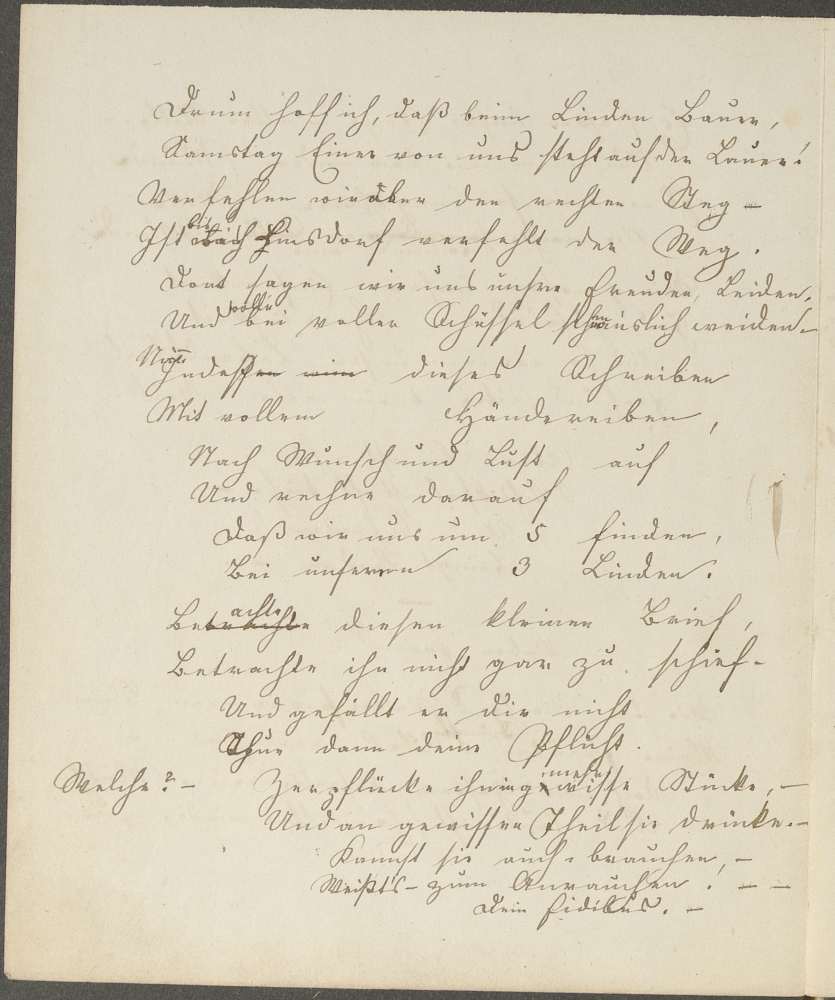 Drum hoff ich, daß beim Linden Bauer,
Samstag Einer von uns steht auf der Lauer!
Verfehlen wir aber den rechten Steg –
Ist bei Hinsdorf verfehlt der Weg.
Dort sagen wir uns unsre Freuden, Leiden,
Und bei voller Schüssel weiden –
Nimm
Indessen wie dieses Schreiben
Mit vollem Händereiben,
Nach Wunsch und Lust auf
Und rechne darauf
Daß wir uns um 5 finden,
Bei unseren 3 Linden.
achte
Betrachte diesen kleinen Brief,
Betrachte ihn nicht gar zu schief –
Und gefällt er Dir nicht
Thue dann deine Pflicht.
Welche? – Zerpflücke ihn in gewisse Stücke, –
Und an gewissen Theil sie drücke. –
Kannst sie auch brauchen, –
Weißt's – zum Anrauchen! – –
Dein Fidibus. –